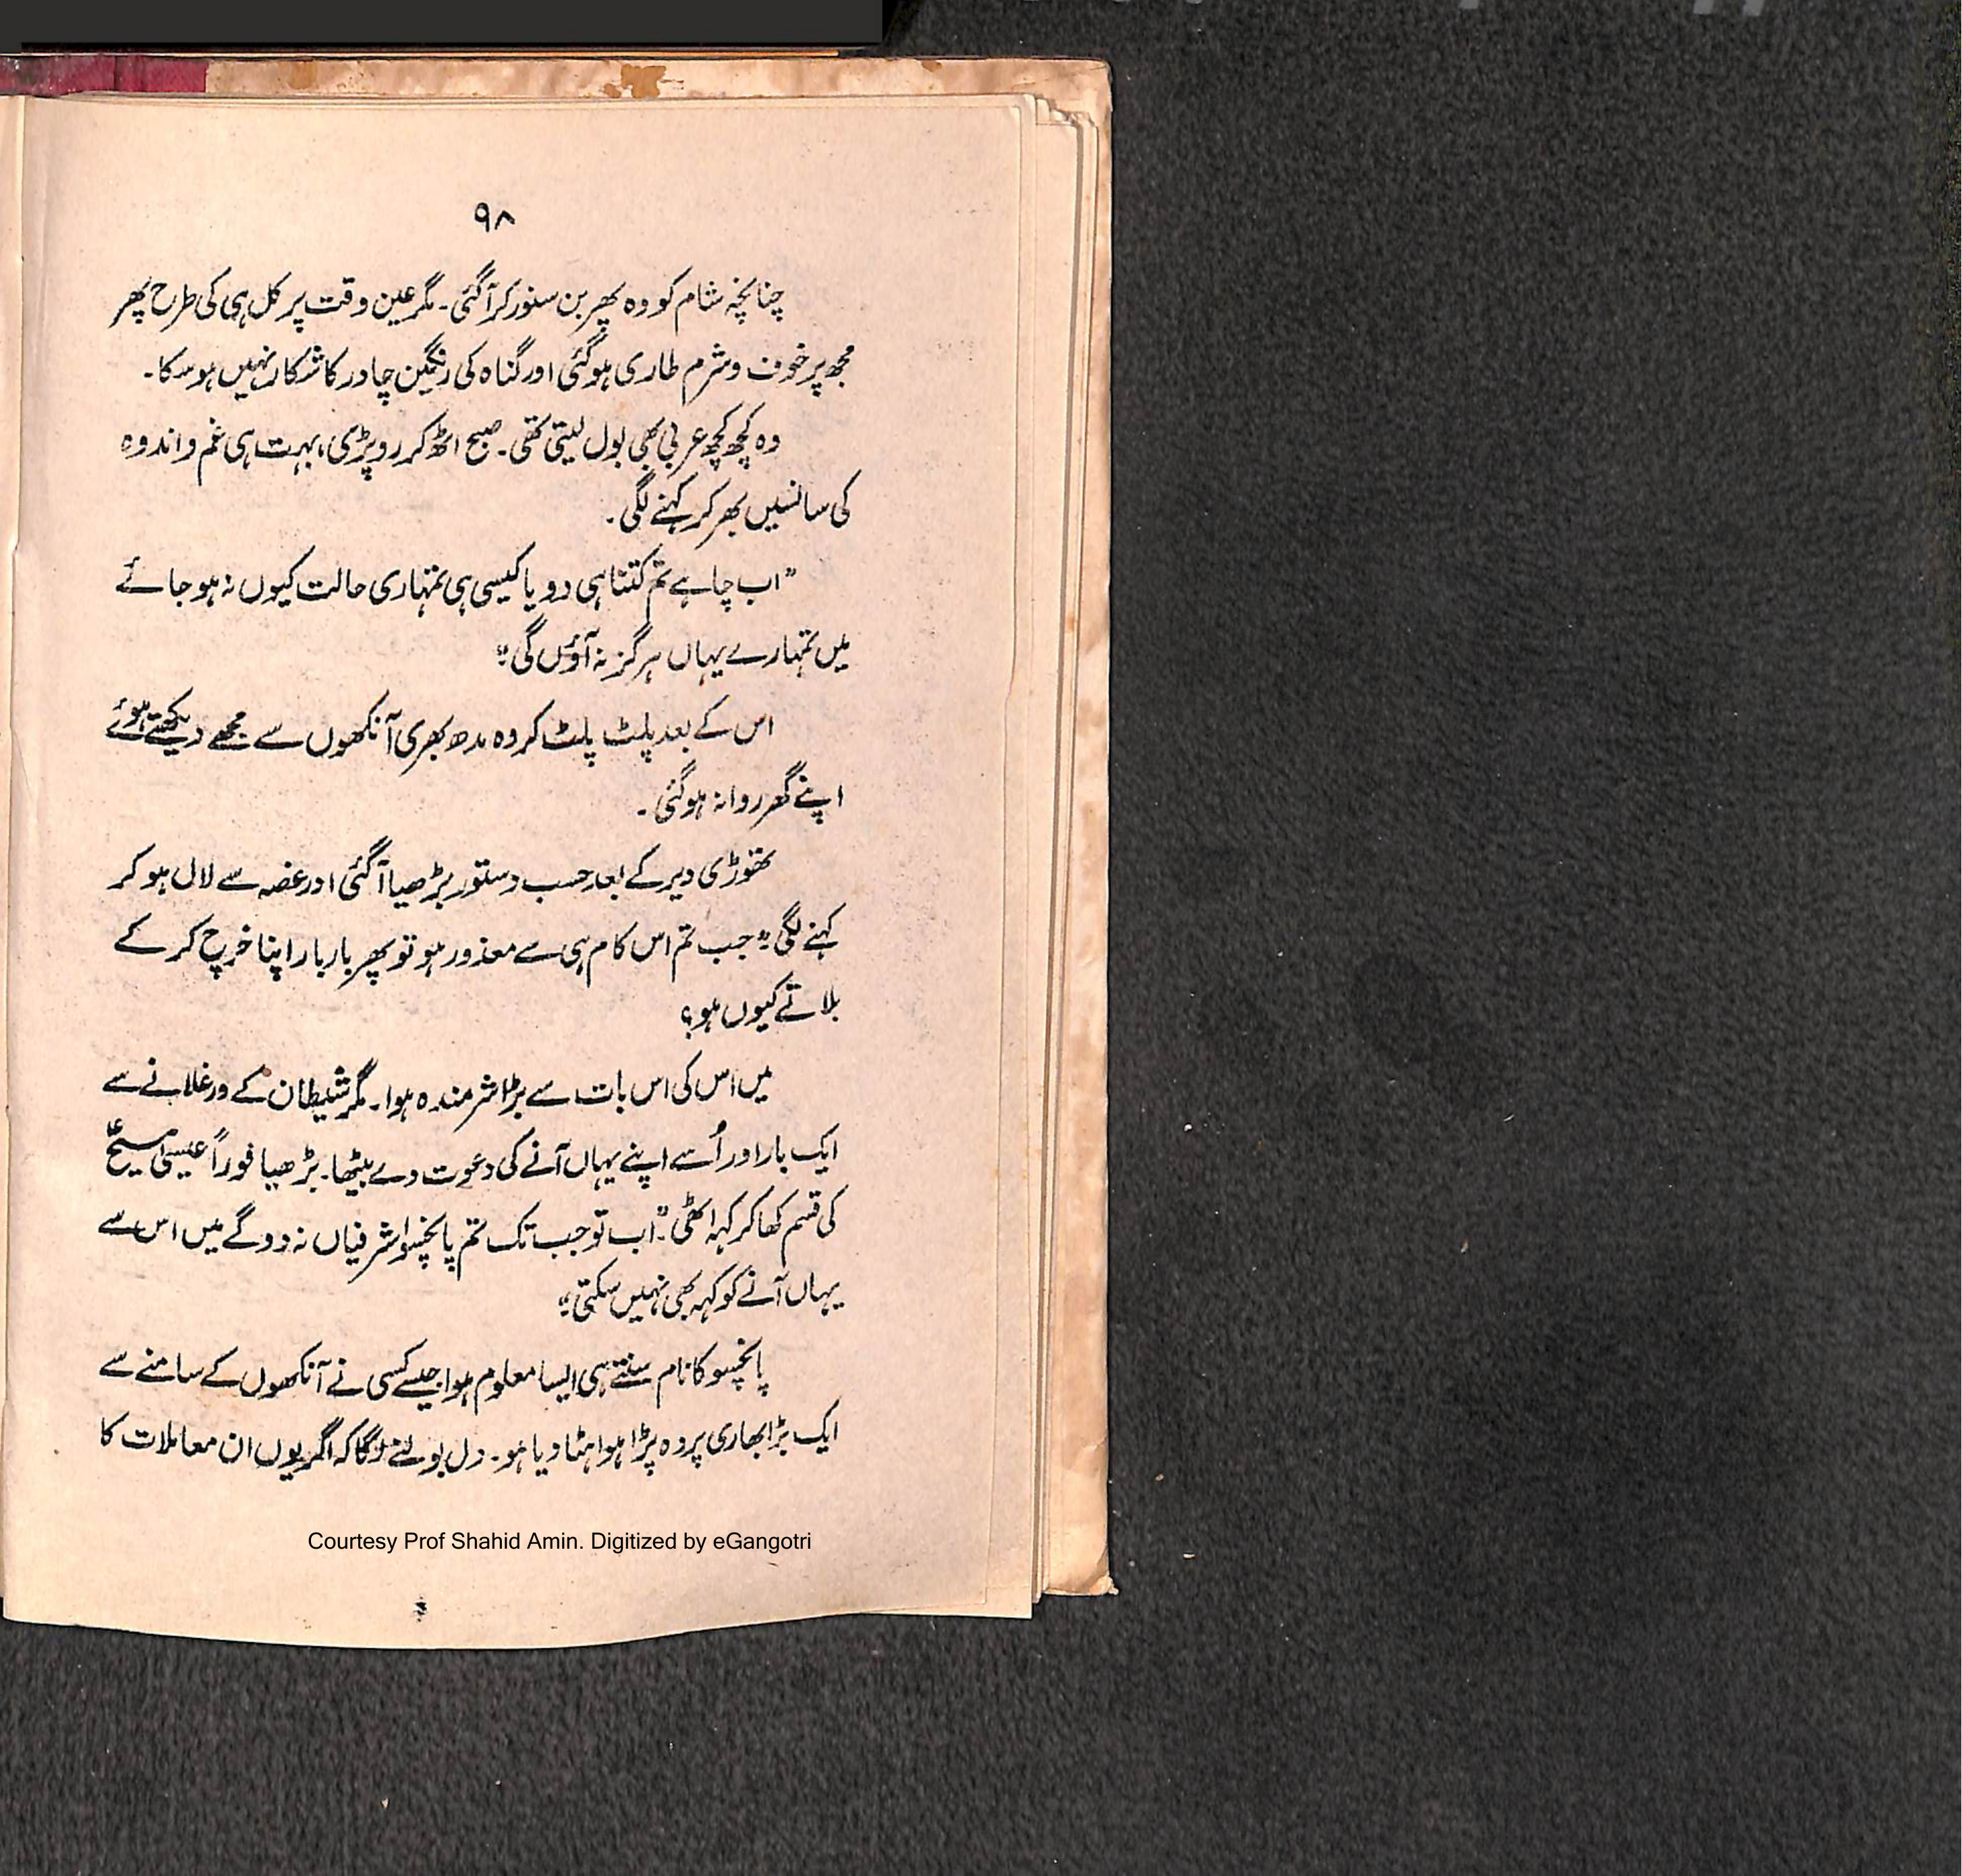 ۹۸
چنانچہ شام کو وہ پھر بن سنور کر آگئی۔ مگر عین وقت پر کل ہی کی طرح پھر
مجھ پر خوف و شرم طاری ہوگئی اور گناہ کی رنگین چادر کا شکار نہیں ہو سکا۔
وہ کچھ کچھ عربی بھی بول لیتی تھی۔ صبح اٹھ کر رو پڑی، بہت ہی غم و اندوہ
کی سانسیں بھر کر کہنے لگی۔
"اب چاہے تم کتنا ہی دو یا کیسی ہی تمہاری حالت کیوں نہ ہو جائے
میں تمہارے یہاں ہرگز نہ آؤں گی"
اس کے بعد پلٹ پلٹ کر وہ مدھ بھری آنکھوں سے مجھے دیکھتے ہوئے
اپنے گھر روانہ ہوگئی۔
تھوڑی دیر کے بعد حسب دستور بڑھیا آگئی اور غصہ سے لال ہو کر
کہنے لگی" جب تم اس کام ہی سے معذور ہو تو پھر بار بار اپنا خرچ کر کے
بلاتے کیوں ہو؟
میں اس کی اس بات سے بڑا شرمندہ ہوا۔ مگر شیطان کے ورغلانے سے
ایک بار اور اُسے اپنے یہاں آنے کی دعوت دے بیٹھا۔ بڑھیا فوراً عیسیٰ مسیحؑ
کی قسم کھا کر کہہ اٹھی"۔ اب تو جب تک تم پانچسو اشرفیاں نہ دوگے میں اس سے
یہاں آنے کو کہہ بھی نہیں سکتی"
پانچسو کا نام سنتے ہی ایسا معلوم ہوا جیسے کسی نے آنکھوں کے سامنے سے
ایک بڑا بھاری پردہ پڑا ہوا ہٹا دیا ہو۔ دل بولنے لگا کہ اگر یوں ان معاملات کا
Courtesy Prof Shahid Amin. Digitized by eGangotri